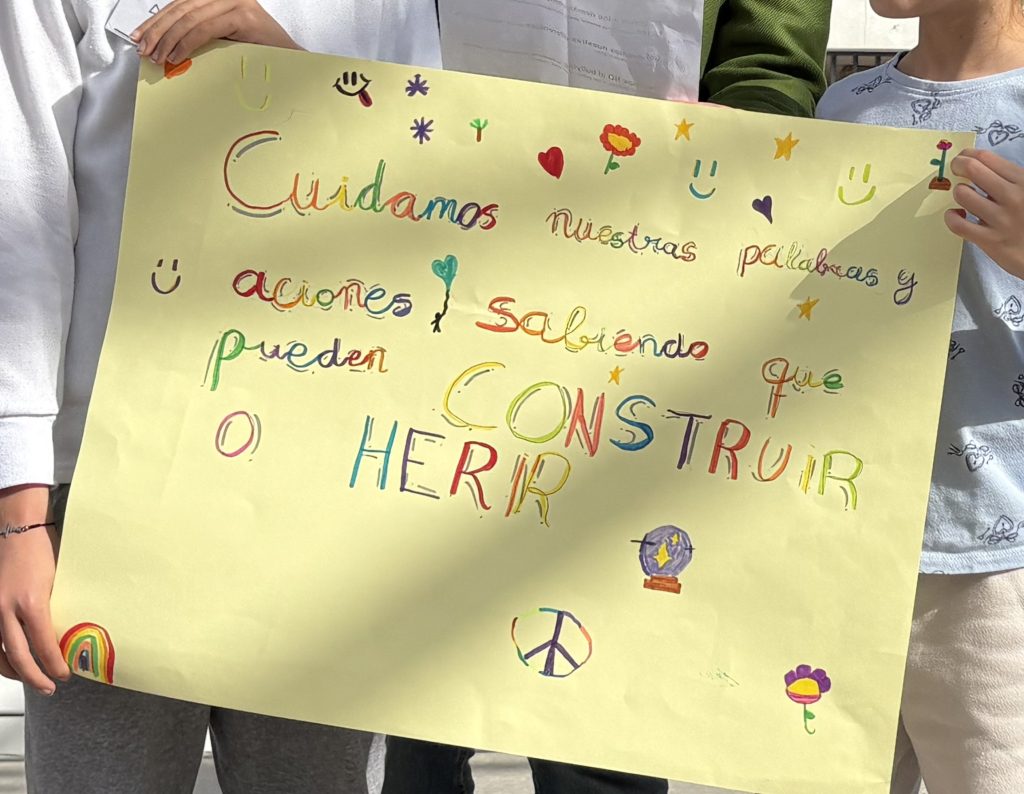 Cuidamos nuestras palabras y
aciones sabiendo que
pueden CONSTRUIR
O HERIR